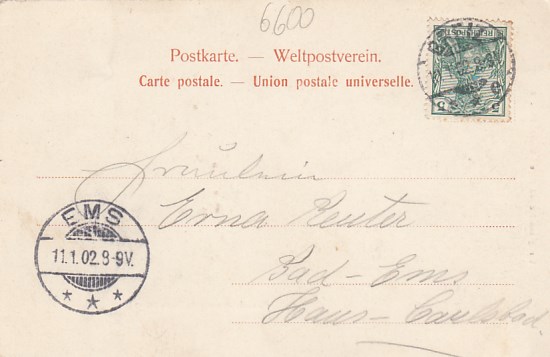 6600
Postkarte. — Weltpostverein.
Carte postale. — Union postale universelle.
5 5
Fräulein
Erna Reuter
Bad-Ems
Haus-Carlsbad.
EMS
11.1.02.8-9V.